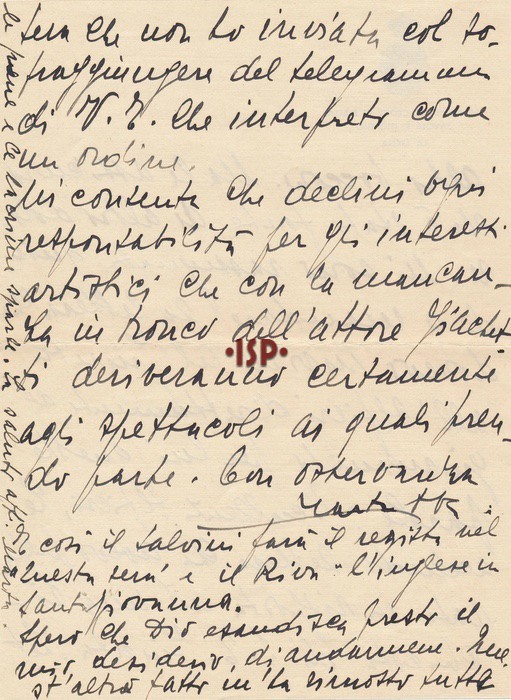 tera che non ho inviata col so-
praggiungere del telegramma
di V. E. che interpreto come
un ordine.
Mi consenta che declini ogni
responsabilità per gli interessi
artistici che con la mancan-
za in tronco dell'attore
ti deriveranno certamente
agli spettacoli ai quali pren-
do parte. Con osservanza
Marta Abba
E così il Salvini farà il regista nel
"Questa sera" e il Riva "l'inglese in
Santa Giovanna.
Spero che Dio esaudisca presto il
mio desiderio, di andarmene.
st'altro fatto m'ha rimosso tutte
le pene e le lacrime sparse. La saluto aff. Marta.
·ISP·